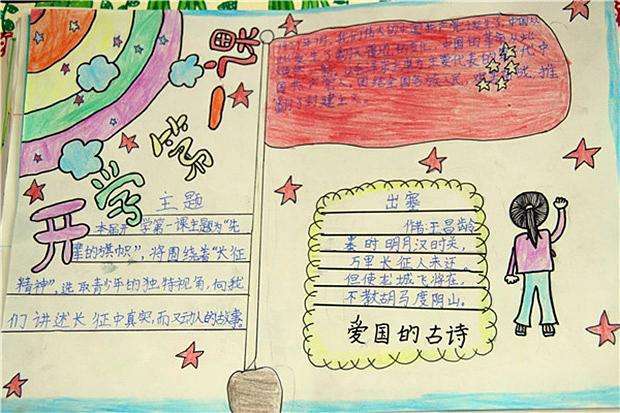 开学第一课
我们伟大的中国共产党诞生了,中国从
中国的革命从此
代表的
代中
国共产党人,团结全国各族人民,
推
翻了封建主义。
主题
本届开学第一课主题为“先
辈的旗帜”,将围绕着“长征
精神”,选取青少年的独特视角,向我
们讲述长征中真实,而又动人的故事。
出塞
作者:王昌龄
秦时明月汉时关,
万里长征人未还。
但使龙城飞将在,
不教胡马度阴山。
爱国的古诗